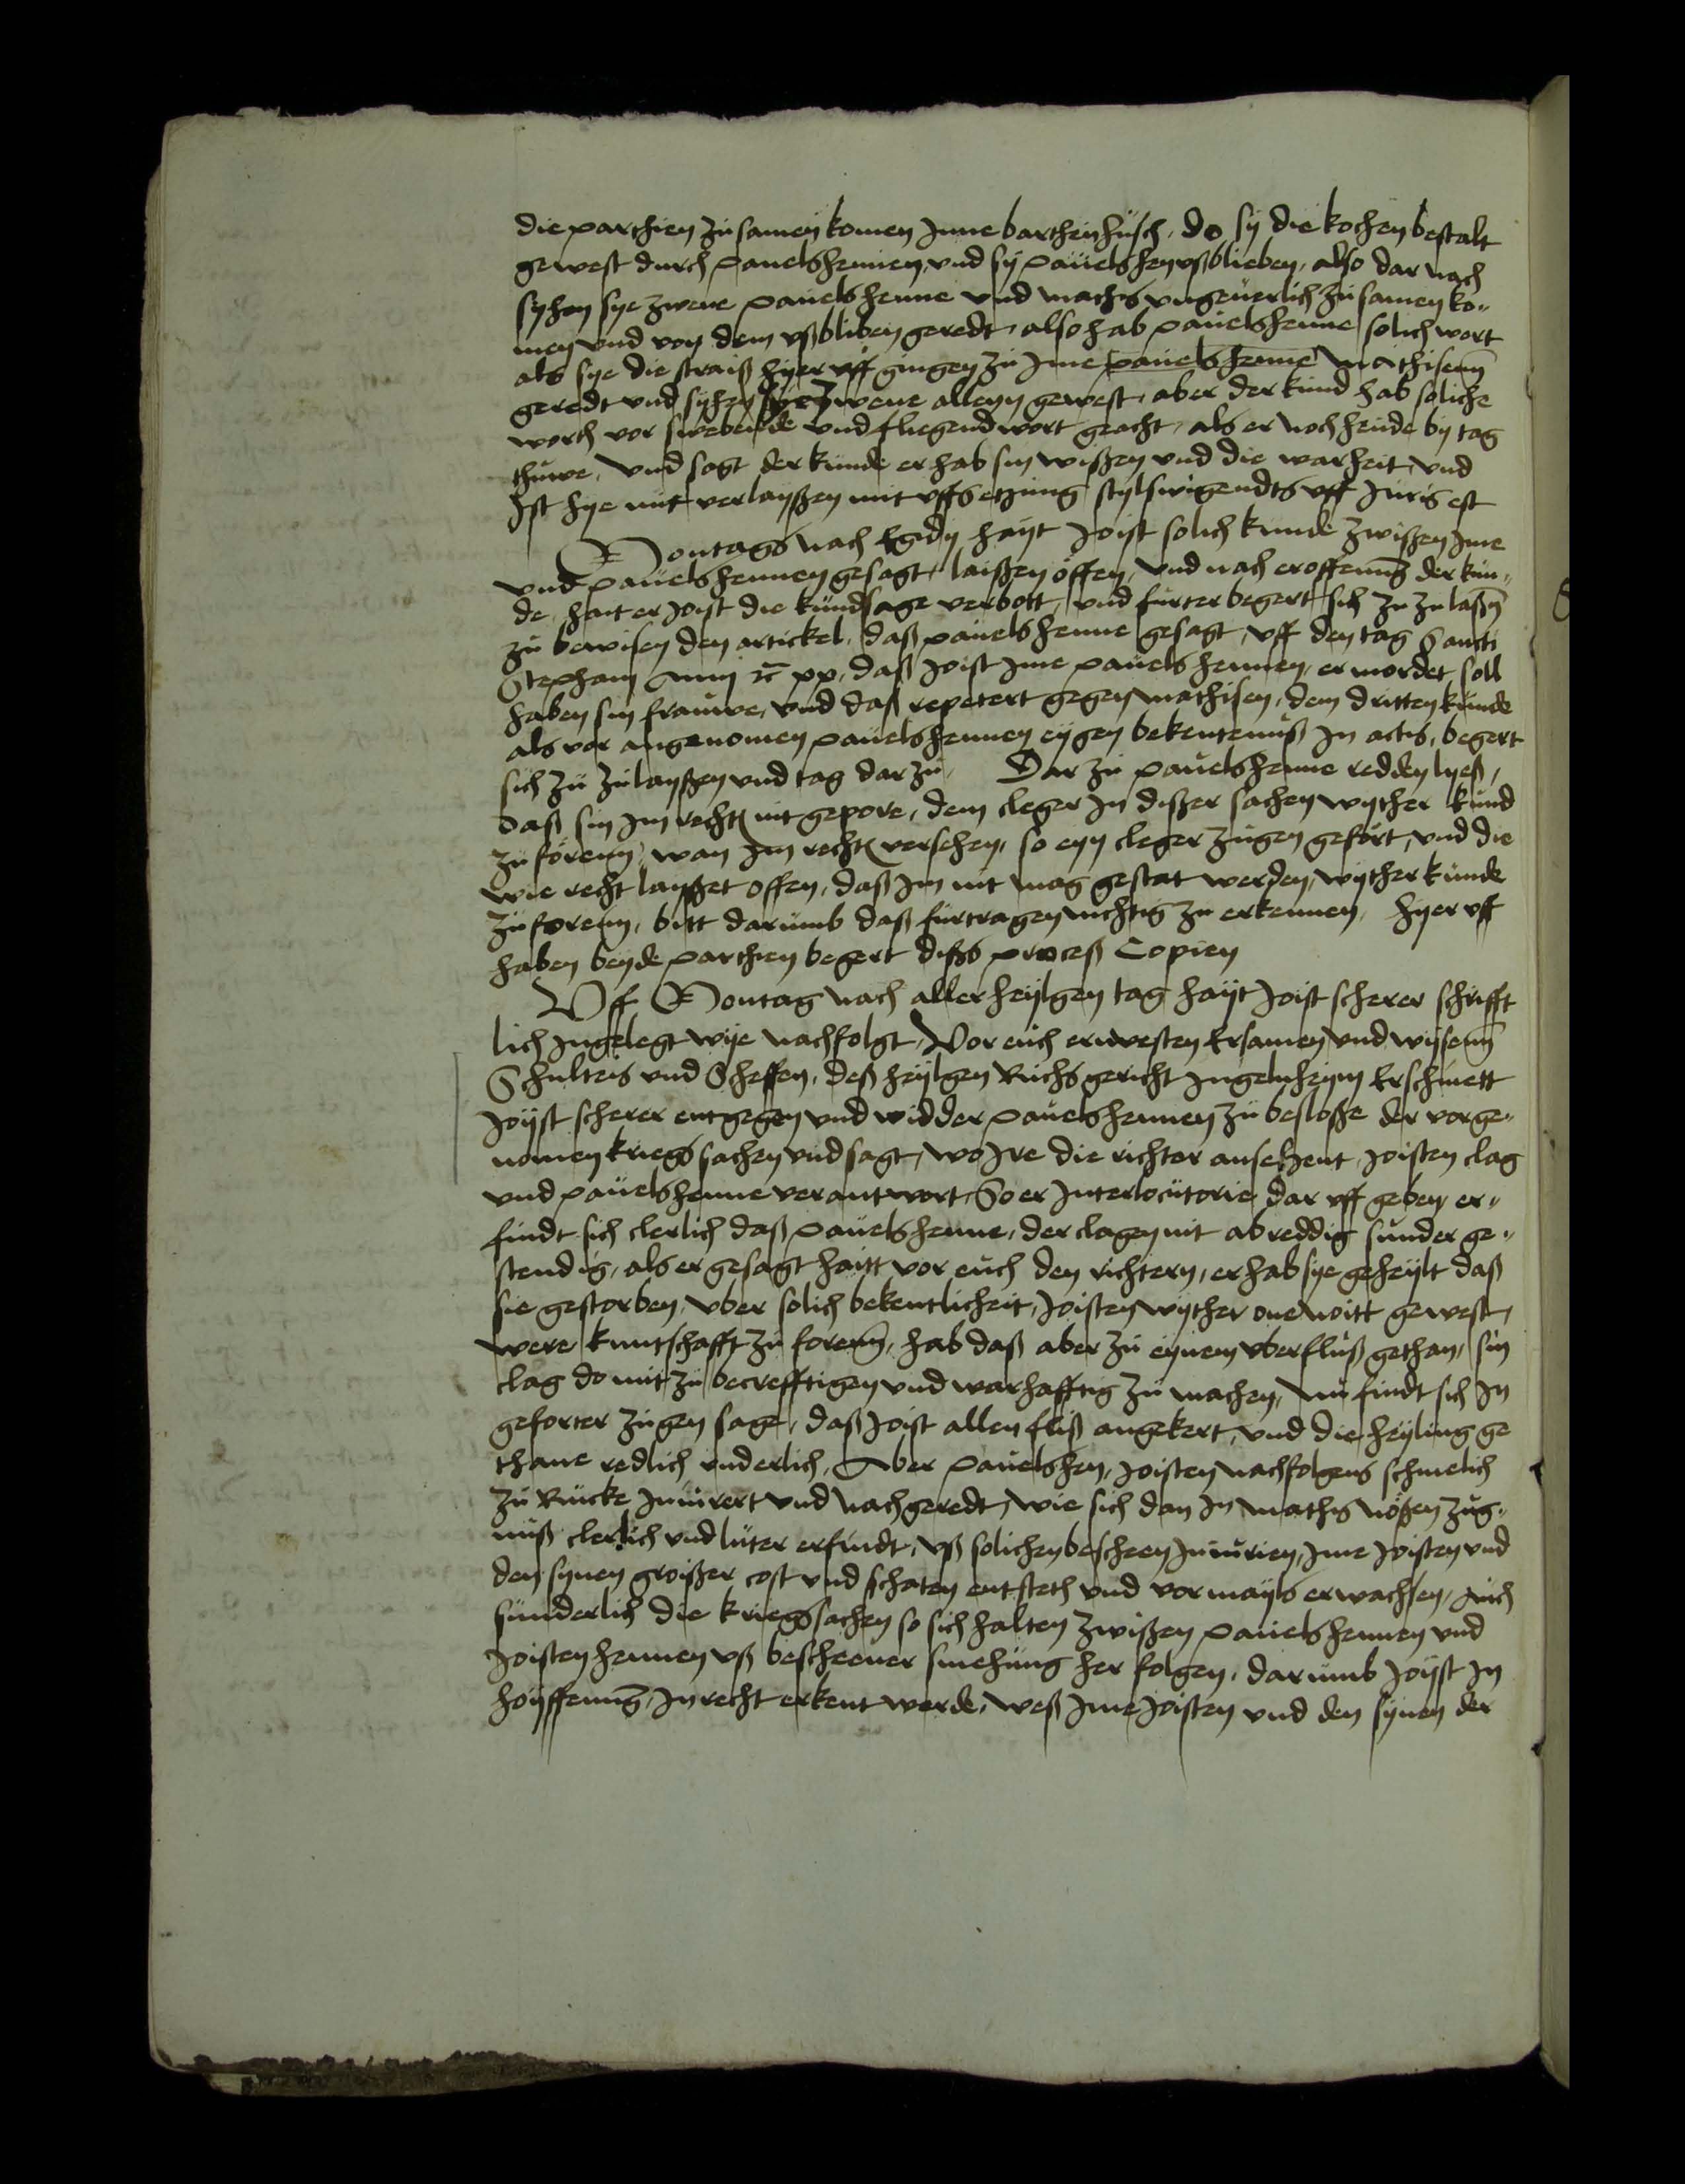 die parthien zusamen komen Inne barthen husch, do sy die kochen bestalt
gewest durch pauelshennen, vnd sy pauelshen vßblieben, also dar nach
syhen sye zwene pauelshenne vnd mathis vngeuerlich zusamen ko-
men vnd von dem vßbliben geredt, also hab pauelshenne solich wort
als sye die straiß hyer vff gingen zu Ime pauelshenne mathisenn
geredt vnd syhen sye zwene alleyn gewest, aber der kund hab soliche
worth vor swebende vnd fliegend wort geacht, als er noch heude by tag
thuwe, vnd sagt der kunde er hab sin wißen vnd die warheit, vnd
Ist hye mit verlayßen mit vffsetzung stylswigendts vff Juris est
Montags nach Egidij hayt Joist solich kunde zwißen Ime
vnd pauelshennen gesagt, laißen offen, vnd nach eroffenung der kun-
de, hait er Joist die kundsage verbott, vnd furter begert sich zu zulaßen
zu bewisen den artickel, daß pauelshenne gesagt, vff den tag Sancti
Stephani Anni &c xx, daß Joist Ime pauelshennen, ermordet soll
haben sin frauwe, vnd daß repetert gegen mathisen, dem dritten kunde
als vor angenomen pauelshennen eygen bekentenuß In actis, begert
sich zu zulayßen vnd tag dar zu, Dar zu pauelshenne redden lyeß,
daß sin Im rechten nit gepore, dem cleger In dißer sachen wyther kund
zu forenn, wan Im rechten versehen, so eyn cleger zugen gefort, vnd die
wie recht layßet offen, daß Im nit mag gestat werden, wyther kunde
zu forenn, bitt darumb daß furtragen nichtig zu erkennen, hyer vff
haben beyde parthien begert dißs proceß Copien
Vff Montag nach allerheylgen tag hayt Joist scherer schrifft
lich Ingelegt wye nachfolgt, Vor euch ernvesten Ersamen vnd wysenn
Schulteis vnd Scheffen, deß heylgen Richs gericht Ingelnheym Erschinett
Joyst scherer entgegen vnd widder pauelshennen zu besloße der vorge-
nomen kriegs sachen vnd sagt, wo Ire die richter ansehent, Joisten clag
vnd pauelshenne verantwort, So er Interlocutorie dar vff geben, er-
findt sich clerlich daß pauelshenne, der clagen nit abreddig sunder ge-
stendig, als er gesagt haitt vor euch den richtern, er hab sye geheylt daß
sie gestorben, vber solich bekentlicheit, Joisten wyther one noitt gewest,
were kuntschafft zu forenn, hab daß aber zu eynem vberfluß gethan, sin
clag do mit zu becrefftigen vnd warhafftig zu machen, Nu findt sich In
geforter zugen sage, daß Joist allen fliß angekert, vnd die heyling ge
thane redlich vnd erlich, Aber pauelshen, Joisten nachfolgens schmelich
zu Rucke Iniurert vnd nachgeredt, wie sich dan In mathis noßen zug-
nuß clerlich vnd luter erfindt, vß solichen bescheen Iniurien, Ime Joisten vnd
den synen groißer cost vnd schaten entsteth vnd vormayls erwachsen, Auch
sunderlich die kriegs sachen so sich halten zwißen pauelshennen vnd
Joisten hennen vß bescheener smehung her folgen, darumb Joyst In
hoyffenung, In recht erkent werde, weß Ime Joisten vnd den synen der